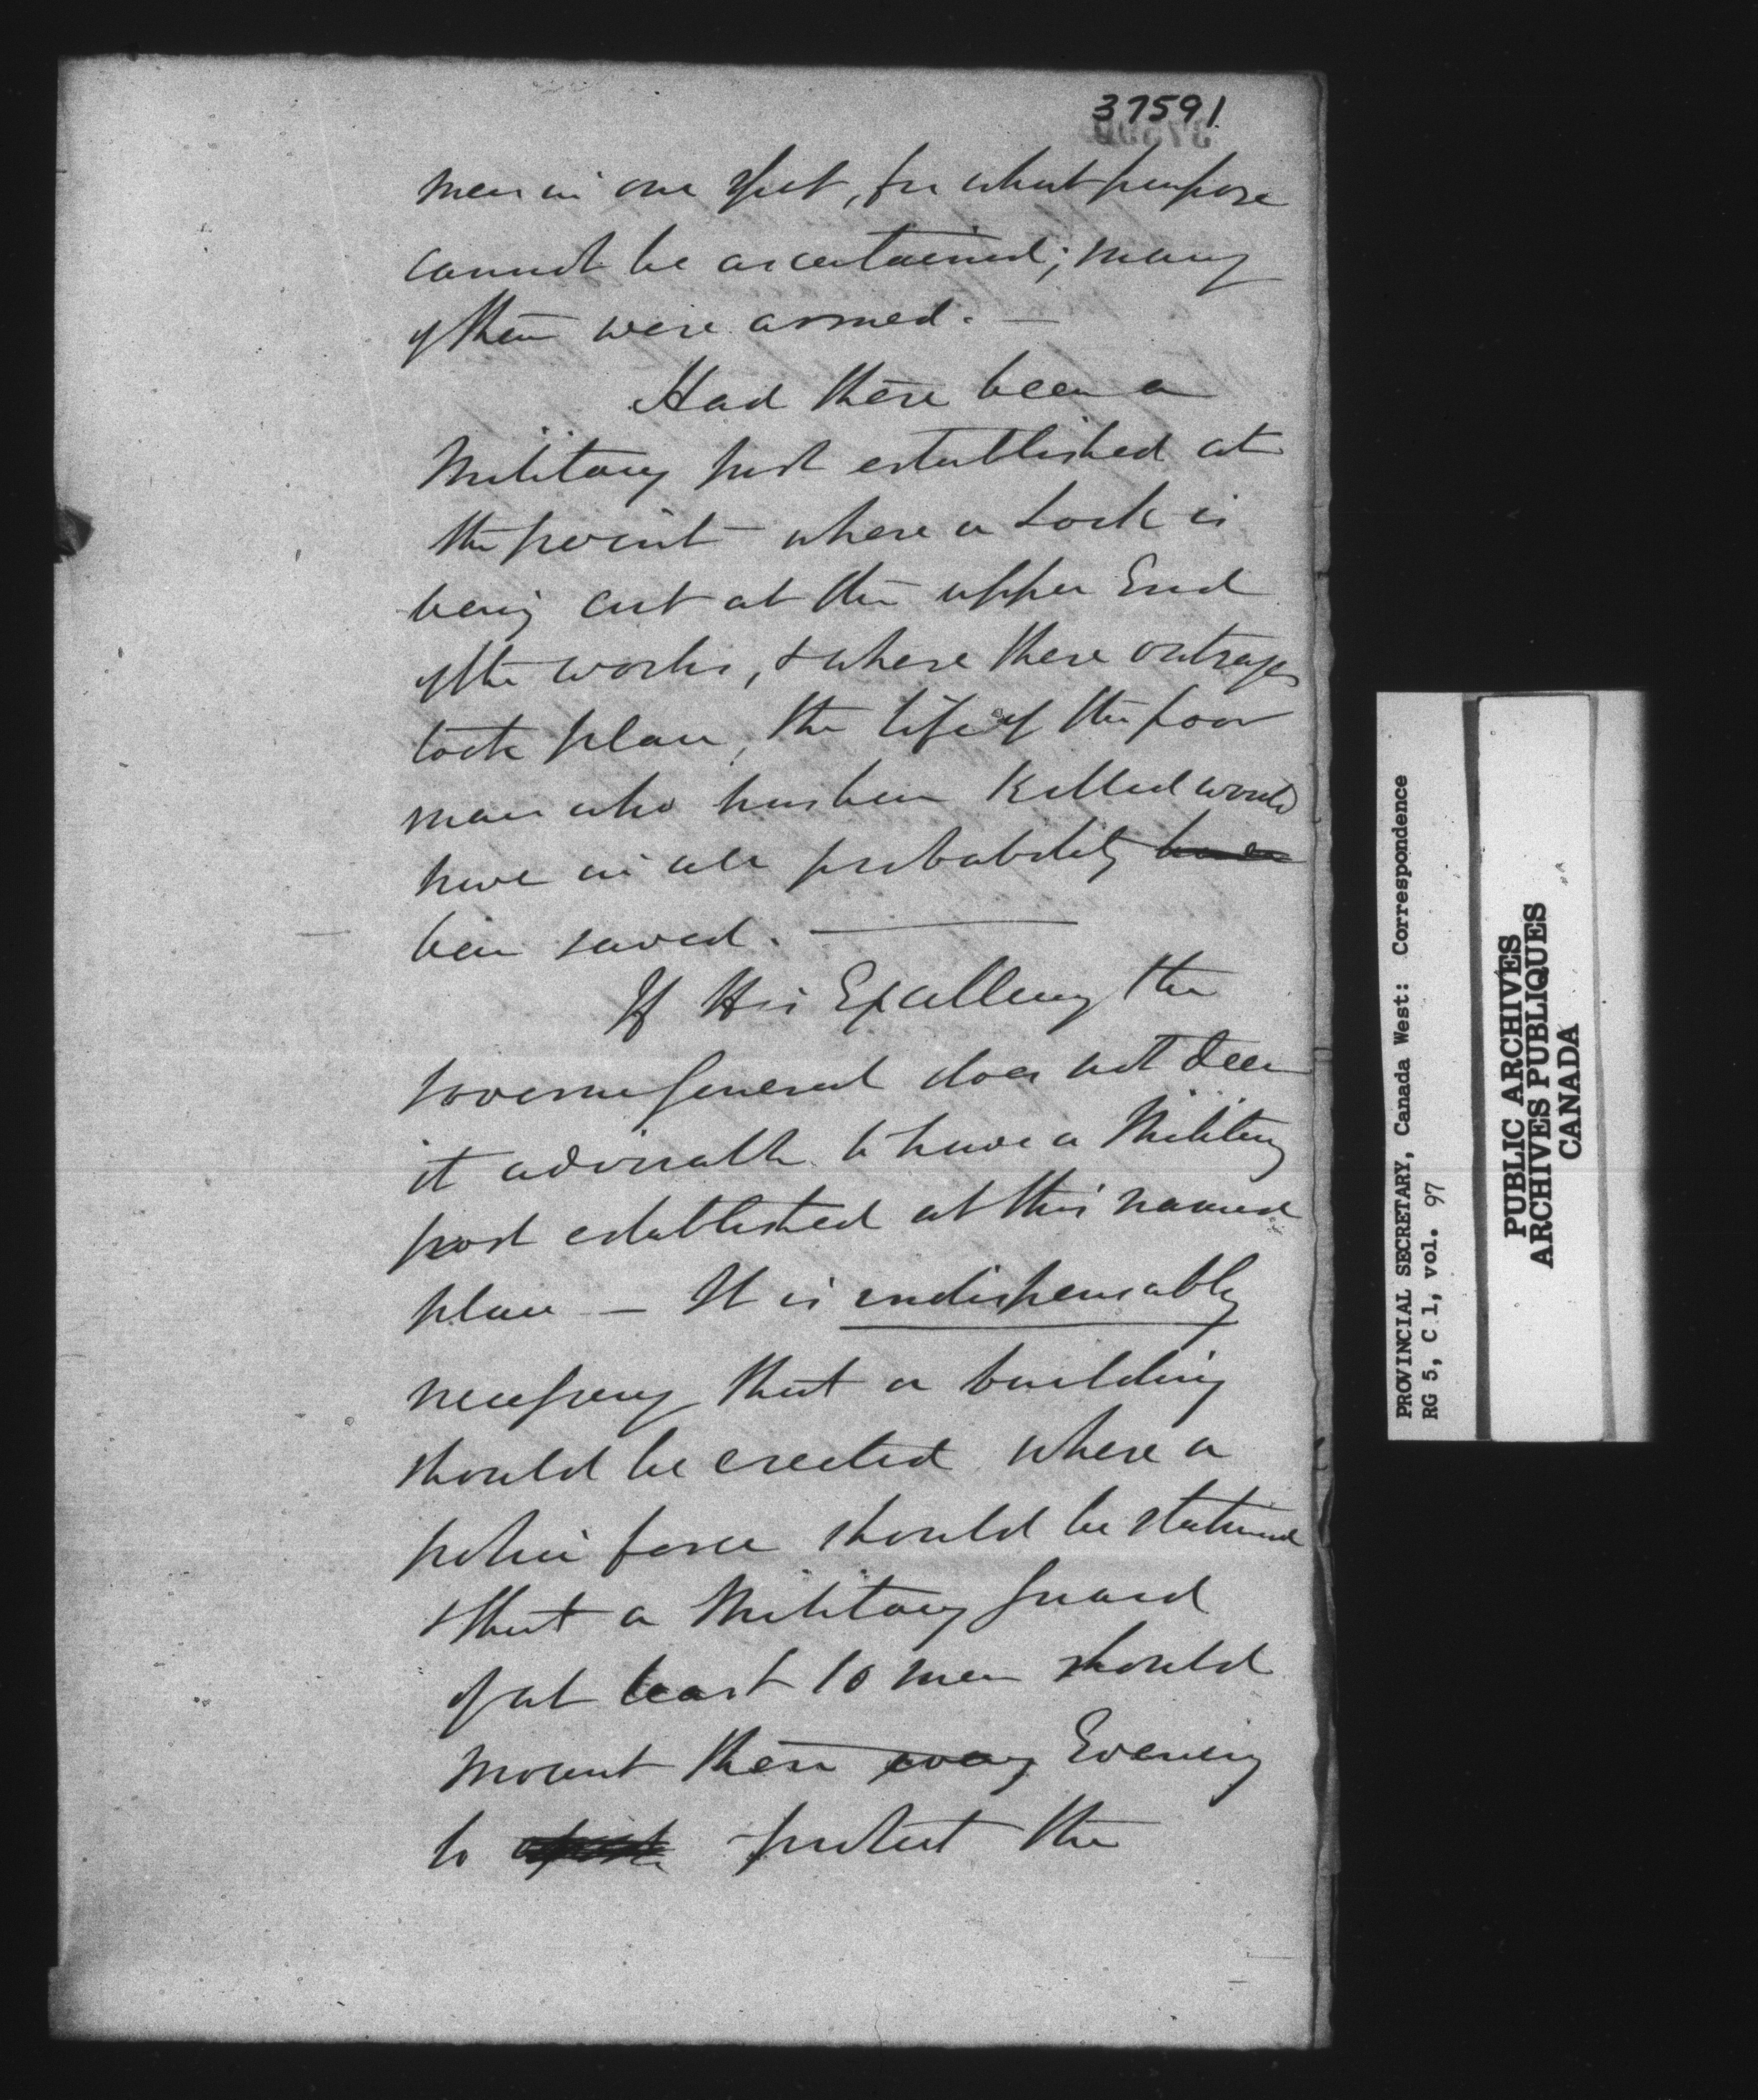 37591
men in one spot, for what purpose
cannot be ascertained; many
of them were armed. —
Had there been a
Military post established at
the point where a Lock is
being cut at the upper End
of the works, & where these outrages
took place, the life of the poor
man who has been Killed would
have in all probability
been saved. —
If His Excellency the
Governor General does not deem
it advisable to have a Military
post established at this named
place — It is indispensably
necessary that a building
should be erected where a
police force should be stationed
& that a Military Guard
of at least 10 men should
mount there every Evening
to protect the
PROVINCIAL SECRETARY, Canada West: Correspondence
RG 5, C 1, vol. 97
PUBLIC ARCHIVES
ARCHIVES PUBLIQUES
CANADA